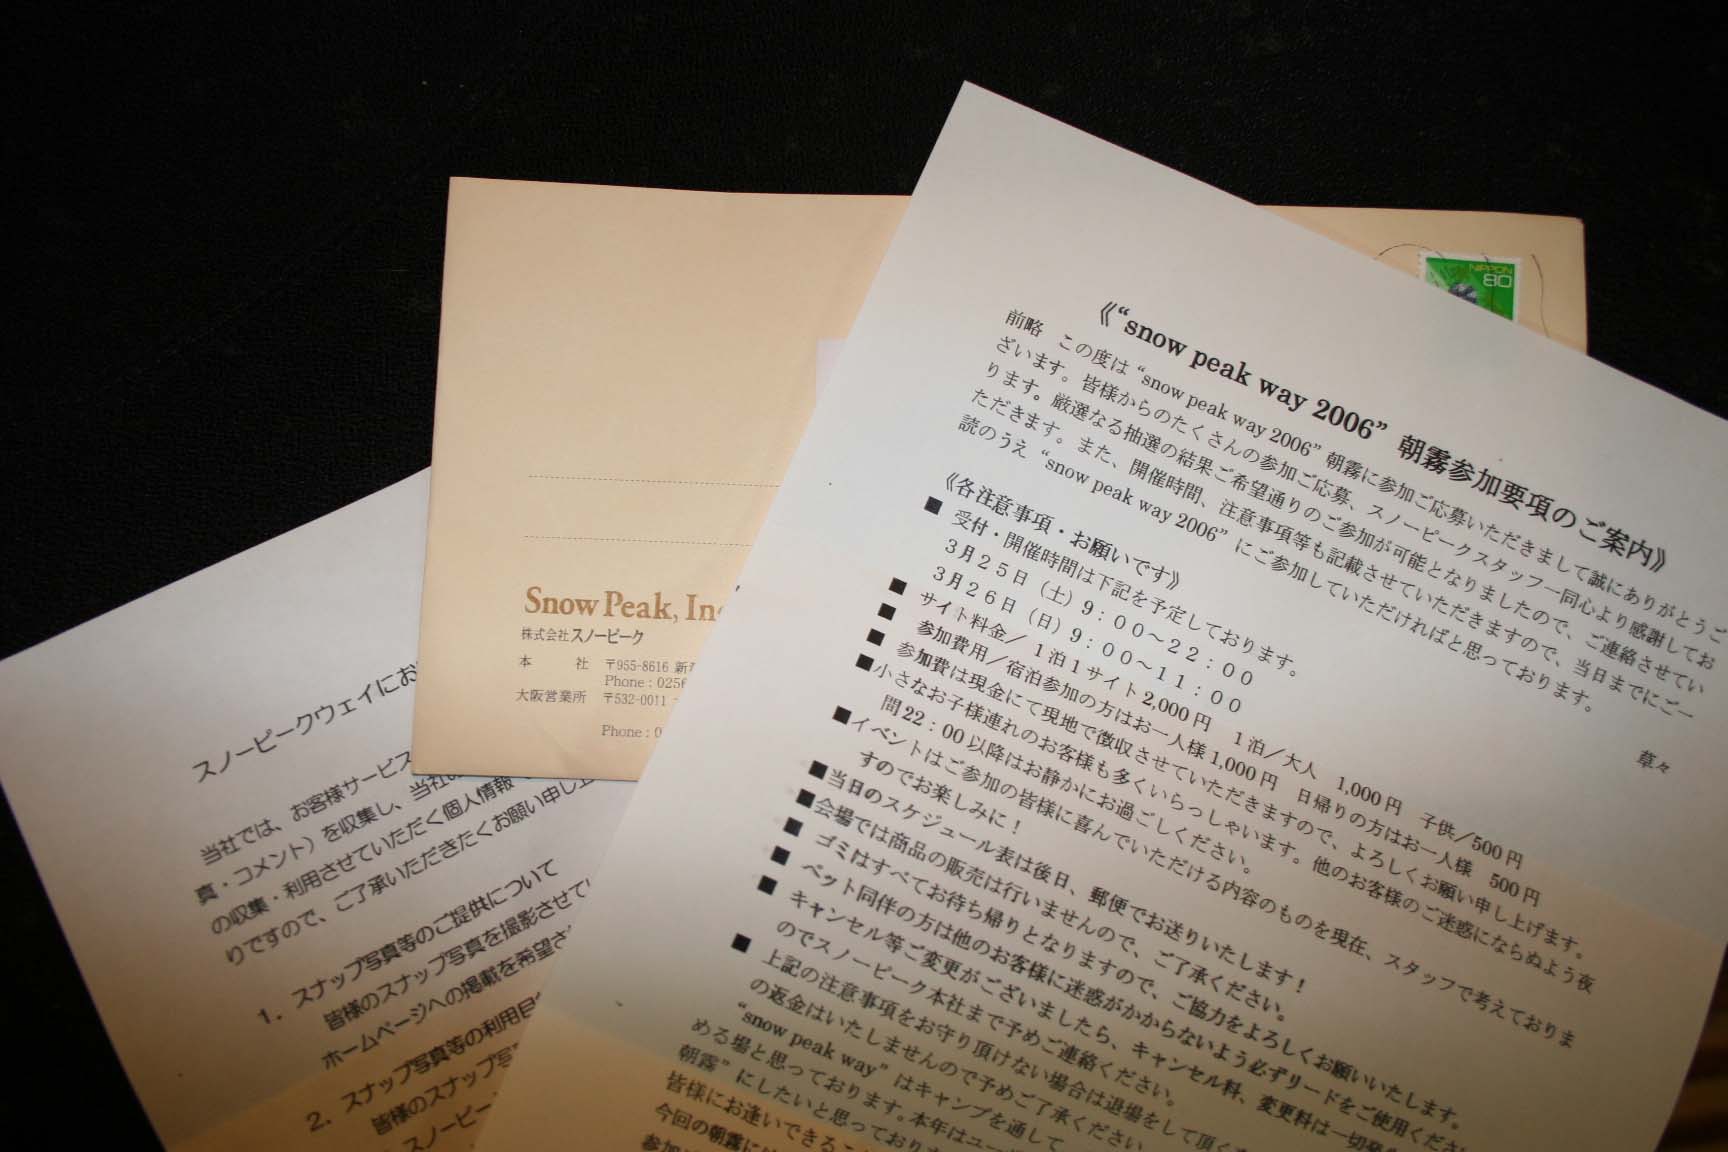 NIPPON
80
《“snow peak way 2006” 朝霧参加要項のご案内》
前略 この度は“snow peak way 2006”朝霧に参加ご応募いただきまして誠にありがとうご
ざいます。皆様からのたくさんの参加ご応募、スノーピークスタッフ一同心より感謝してお
ります。厳選なる抽選の結果ご希望通りのご参加が可能となりましたので、ご連絡させてい
ただきます。また、開催時間、注意事項等も記載させていただきますので、当日までにご一
読のうえ“snow peak way 2006”にご参加していただければと思っております。
草々
《各注意事項・お願いです》
■ 受付・開催時間は下記を予定しております。
3月25日（土）9：00～22：00
3月26日（日）9：00～11：00
■ サイト料金／1泊1サイト2,000円 1泊／大人 1,000円 子供／500円
■ 参加費用／宿泊参加の方はお一人様1,000円 日帰りの方はお一人様 500円
■ 参加費は現金にて現地で徴収させていただきますので、よろしくお願い申し上げます。
■小さなお子様連れのお客様も多くいらっしゃいます。他のお客様のご迷惑にならぬよう夜
間22：00以降はお静かにお過ごしください。
■イベントはご参加の皆様に喜んでいただける内容のものを現在、スタッフで考えておりま
すのでお楽しみに！
■当日のスケジュール表は後日、郵便でお送りいたします！
■会場では商品の販売は行いませんので、ご了承ください。
■ ゴミはすべてお持ち帰りとなりますので、ご協力をよろしくお願いいたします。
■ ペット同伴の方は他のお客様に迷惑がかからないよう必ずリードをご使用くださ
■ キャンセル等ご変更がございましたら、キャンセル料、変更料は一切発
のでスノーピーク本社まで予めご連絡ください。
■ 上記の注意事項をお守り頂けない場合は退場をして頂く
の返金はいたしませんので予めご了承ください
“snow peak way”はキャンプを通して
める場と思っております。本年はユー
朝霧”にしたいと思っており
皆様にお逢いできるこ
今回の朝霧に
参加
Snow Peak, Inc
株式会社スノーピーク
本 社 〒955-8616 新
Phone : 0256
大阪営業所 〒532-0011
Phone : 0
スノーピークウェイにお
当社では、お客様サービス
真・コメント）を収集し、当社の
の収集・利用させていただく個人情報
りですので、ご了承いただきたくお願い申し上
1. スナップ写真等のご提供について
皆様のスナップ写真を撮影させて
ホームページへの掲載を希望さ
2. スナップ写真等の利用目
皆様のスナップ写
スノーピー